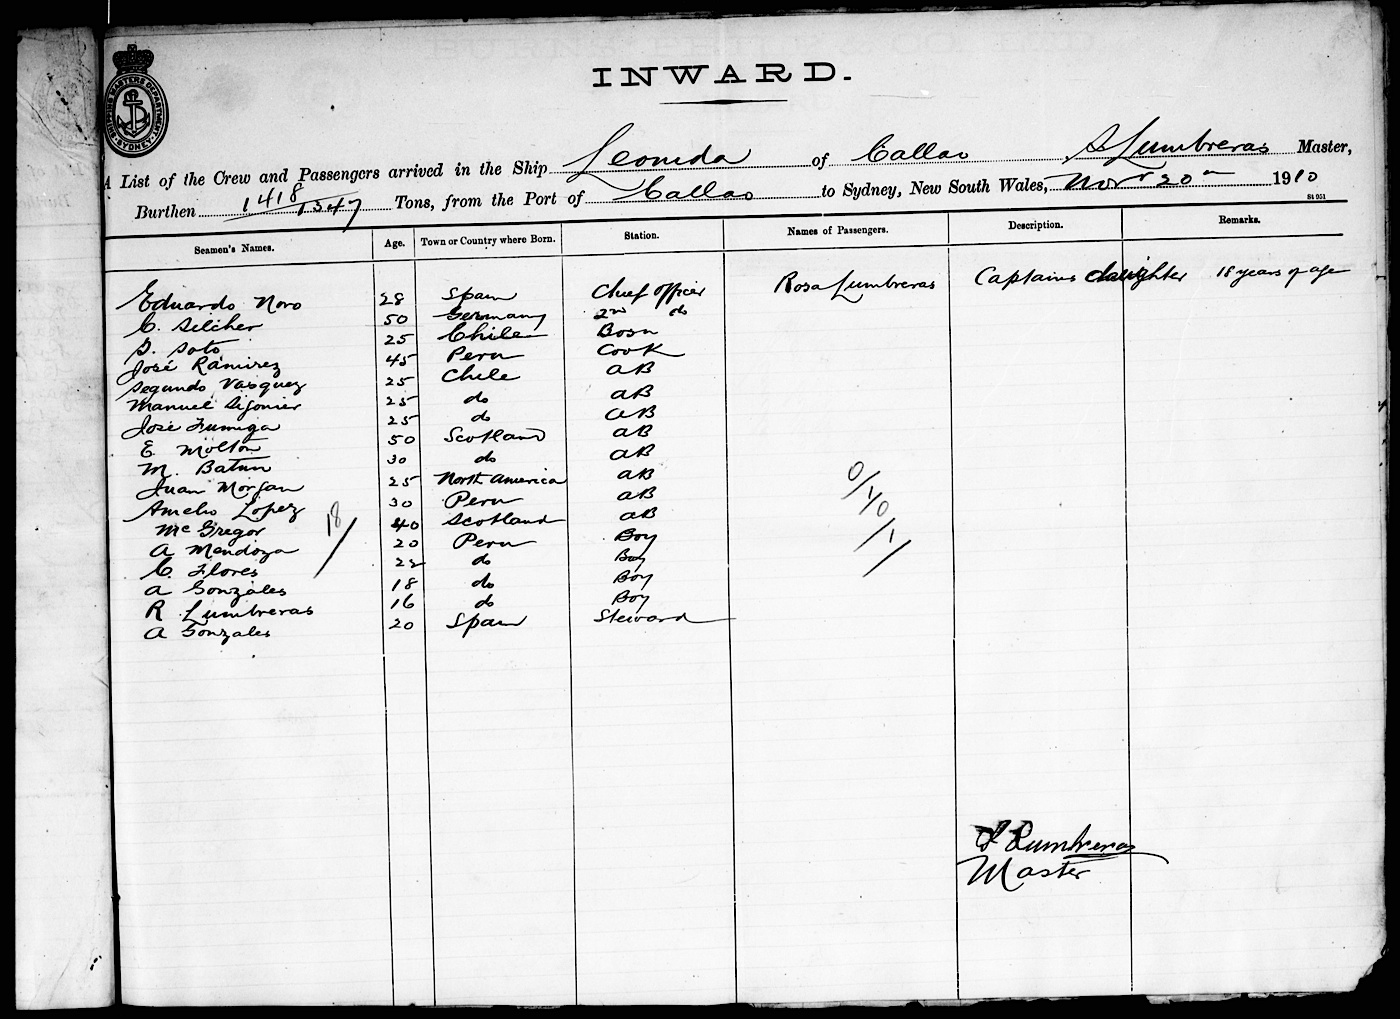 SHIPPING MASTERS DEPARTMENT SYDNEY
INWARD.
A List of the Crew and Passengers arrived in the Ship Leonida of Callao S Lumbreras Master,
Burthen 1418/1347 Tons, from the Port of Callao to Sydney, New South Wales, Novr 20th 1910
St 951
Seamen's Names. Age. Town or Country where Born. Station. Names of Passengers. Description. Remarks.
Eduardo Novo 28 Spain Chief Officer Rosa Lumbreras Captains daughter 18 years of age
C. Silcher 50 Germany 2nd do
S. Soto 25 Chile Bosn
José Ramirez 45 Peru Cook
Segundo Vasquez 25 Chile AB
Manuel 25 do AB
José Zuniga 25 do AB
E Molton 50 Scotland AB
M. Batun 30 do AB
Juan Morgan 25 North America AB
Amelio Lopez 30 Peru AB
Mc Gregor 40 Scotland AB
A Mendoza 20 Peru Boy
C. Flores 22 do Boy
A Gonzales 18 do Boy
R Lumbreras 16 do Boy
A Gonzales 20 Spain Steward
18/
0/1/0
/1/
S Lumbreras
Master